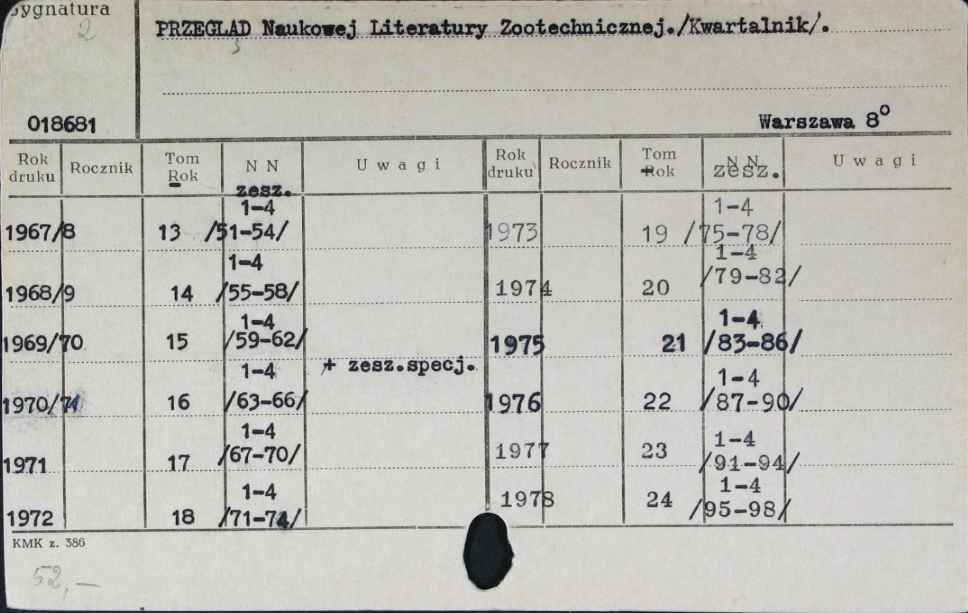 Sygnatura
2
PRZEGLAD Naukowej Literatury Zootechnicznej./Kwartalnik/.
018681
Warszawa 8°
Rok druku Rocznik Tom Rok N N zesz. Uwagi Rok druku Rocznik Tom Rok N N zesz. Uwagi
1967/8 13 1-4 /51-54/ 1973 19 1-4 /75-78/
1968/9 14 1-4 /55-58/ 1974 20 1-4 /79-82/
1969/70 15 1-4 /59-62/ 1975 21 1-4 /83-86/
1970/71 16 1-4 /63-66/ + zesz.specj. 1976 22 1-4 /87-90/
1971 17 1-4 /67-70/ 1977 23 1-4 /91-94/
1972 18 1-4 /71-74/ 1978 24 1-4 /95-98/
KMK z. 386
52,—